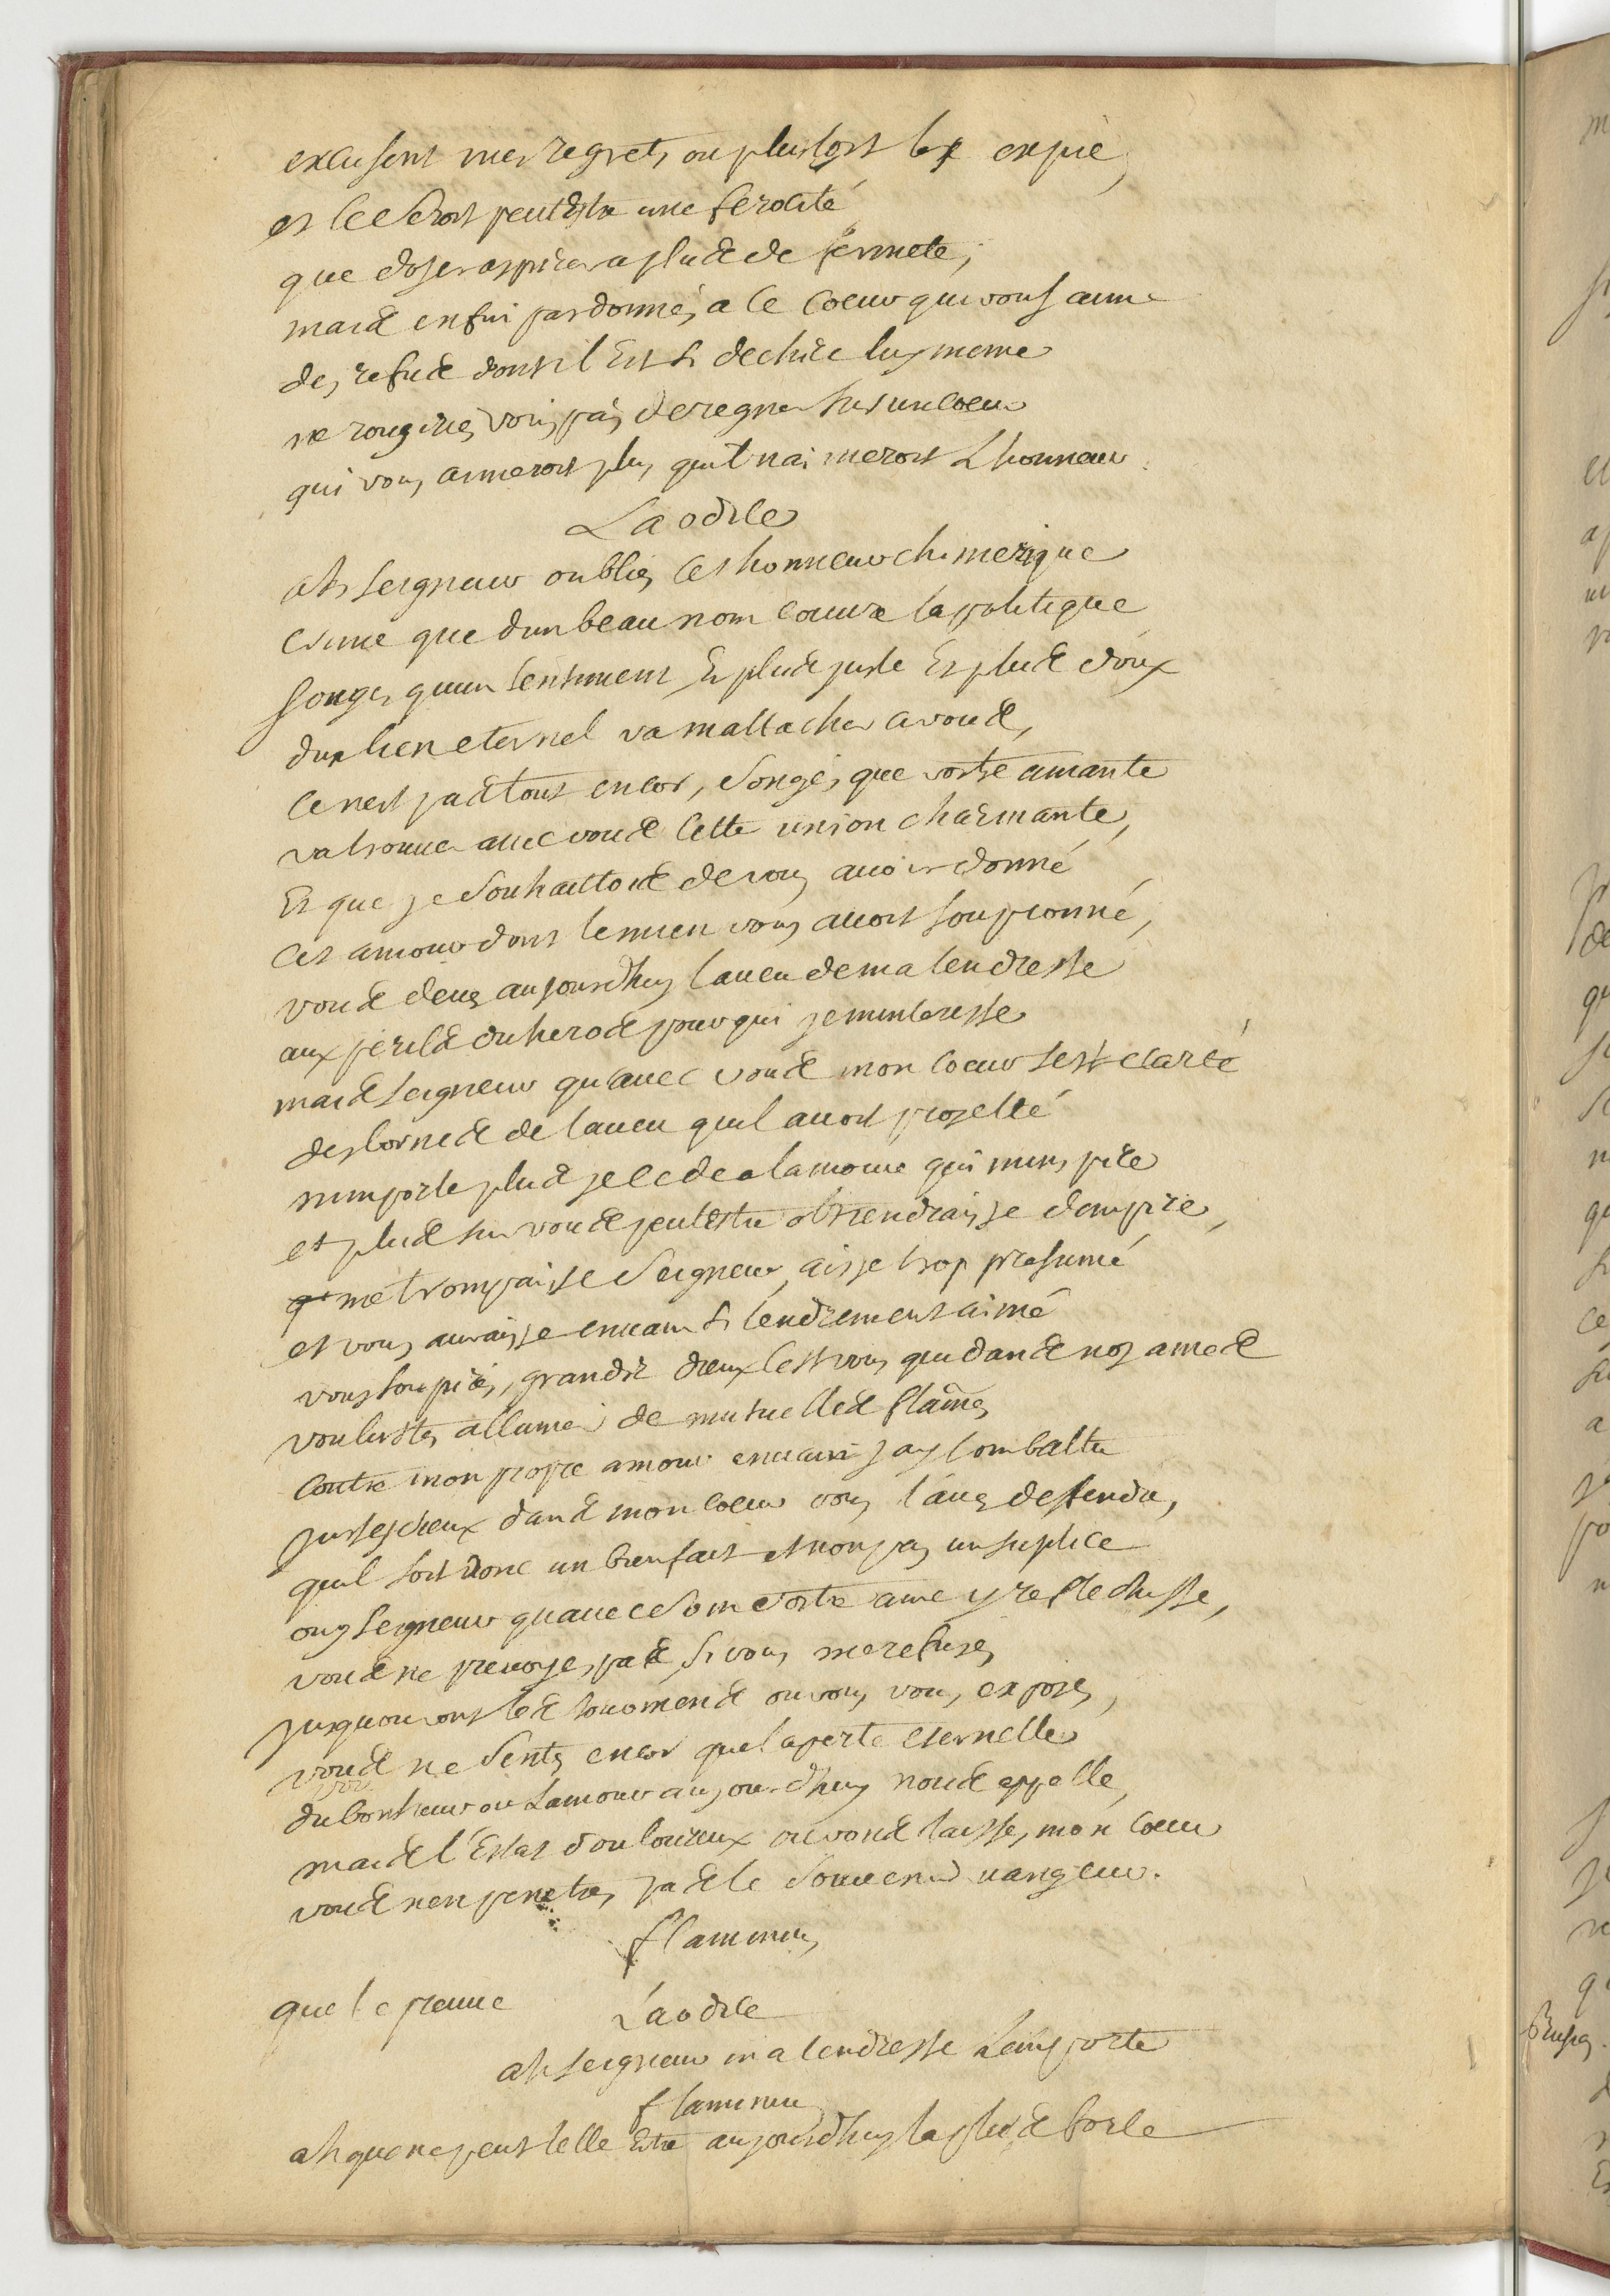 excusent mes regrets ou plustost les expie,
et ce seroit peutestre une ferocité
que doser aspirer a plus de fermeté,
mais enfin pardonnés a ce coeur qui vous aime
des refus dont il Est si dechiré luy meme
ne rougiriés vous pas de regner sur un coeur
qui vous aimeroit plus quil naimeroit Lhonneur.
Laodice
ah seigneur oubliés cet honneur chimerique
crime que dun beau nom couure la politique
songés quun sentiment Et plus juste Et plus doux
dun lien eternel va mattacher a vous,
ce nest pas tout encor, songés que vostre amante
va trouuer auec vous cette union charmante,
Et que je souhaittois de vous auoir donné
cet amour dont le mien vous auoit soupconné,
vous deués aujourdhuy laueu de ma tendresse
aux perils du heros pour qui je minteresse
mais seigneur quauec vous mon coeur sest ecarté
des bornes de laueu quil auoit projetté
nimporte plus je cede a lamour qui minspire
et plus sur vous peutestre obtiendraisje dempire,
me trompaisje seigneur, aisje trop presumé
et vous auraisje enuain si tendrement aimé
vous soupirés, grands dieux cest vous qui dans nos ames
voulustes allumer de mutuelles flâmes
contre mon propre amour enuain jay combattu
justes dieux dans mon coeur vous laués deffendu,
quil soit donc un bienfait et non pas un suplice
ouy seigneur quauec soin vostre ame y reflechisse,
vous ne preuoyés pas si vous me refusés
jusquou vont les tourmens ou vous vous exposés,
vous ne sentés encor que la perte eternelle
du bonheur ou Lamour aujourdhuy nous appelle,
mais l'Estat douloureux ou vous laissés mon coeur
vous nen penetrés pas le souuenir vangeur.
flaminius
que le preuue
Laodice
ah seigneur ma tendresse Lemporte
flaminius
ah que ne peut telle Estre aujourdhuy la plus forte